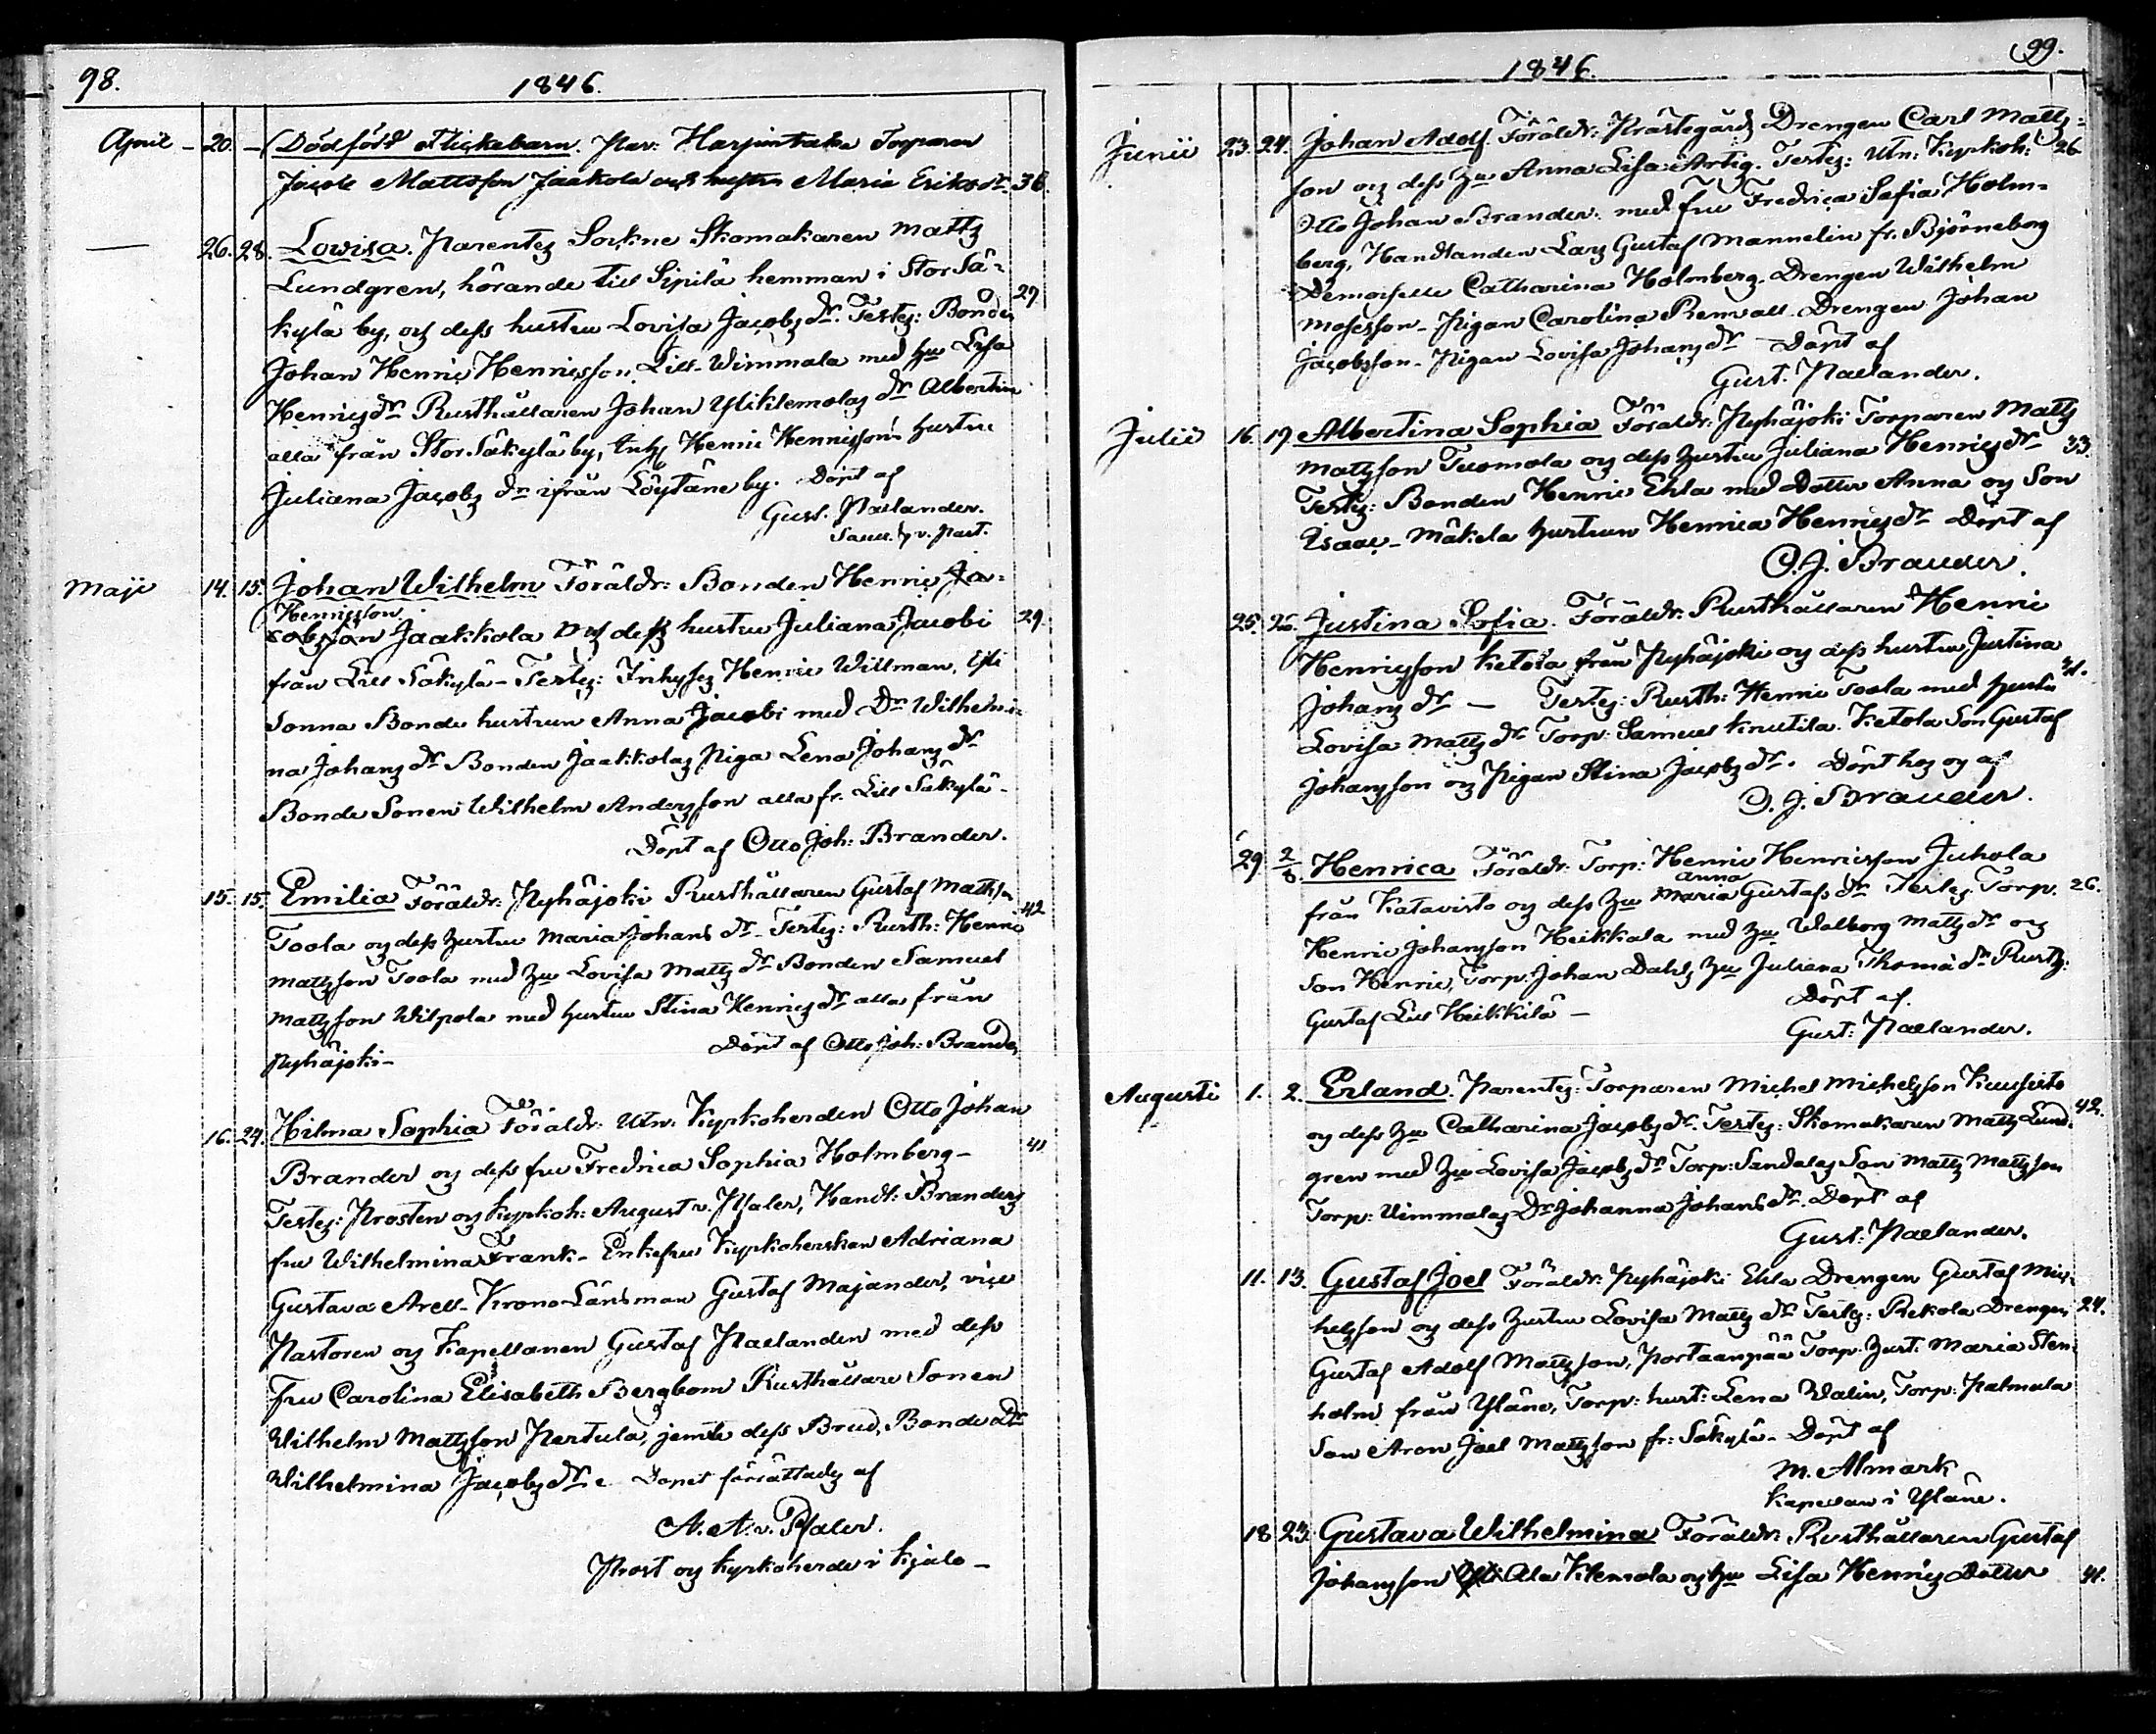 98.
1846.
April - 20. - Dödfödt flickebarn. Par: Harjuntaka Torparen
Jacob Mattsson Jaakola och hustru Maria Eriksdr 36.
26. 28. Lovisa. Parentes Sockne Skomakaren Matts
Lundgren, hörande till Sipilä hemman i Stor Sä-
kylä by, och dess hustru Lovisa Jacobs dr. Testes: Bonden 27
Johan Henric Henricsson Lill-Wimmala med Hu Lisa
Henrics dr Rusthållaren Johan Yliklemolas dr Albertina
alla från Stor Säkylä by, Inh Henric Henrissons hustru
Juliana Jacobs dr ifrån Löytäne by. Döpt af
Gust. Paelander.
Sacell. v. Past.
Maji 14. 15. Johan Wilhelm Föräldr: Bonden Henric Ja-
Henricsson
cobsson Jaakkola och dess hustru Juliana Jacobi 29.
från Lill Säkylä - Testes: Inhyses Henric Willman,
Sonna Bonde hustrun Anna Jacobi med Dr Wilhelmi-
na Johans dr Bonden Jaakkolas Piga Lena Johans dr
Bonde Sonen Wilhelm Andersson alla fr. Lill Säkylä -
Döpt af Otto Joh: Brander.
15. 15. Emilia Föräldr: Pyhäjoki Rusthållaren Gustaf Matts 42
Toola och dess hustru Maria Johans dr - Testes: Rusth: Henric
Mattsson Toola med Hu Lovisa Matts dr Bonden Samuel
Mattsson Wilpola med hustru Stina Henrics dr alla från
Pyhäjoki - Döpt af Otto Joh: Brander
16. 24. Hilma Sophia Föräldr: Utn. Kyrkoherden Otto Johan
Brander och dess fru Fredrica Sophia Holmberg - 41
Testes: Prosten och Kyrkoh: August v. Pfaler, Handl: Branders
fru Wilhelmina Frank - Enkefru Kyrkoherskan Adriana
Gustava Arell - Krono Länsman Gustaf Majander, vice
Pastoren och Kapellanen Gustaf Paelander med dess
Fru Carolina Elisabeth Bergbom Rusthållare Sonen
Wilhelm Mattsson Pertula, jemte dess Brud, Bonde Dr
Wilhelmina Jacobs dr. Dopet förrättades af
A. A. v. Pfaler.
Prost och Kyrkoherde i Kjulo -
99.
1846
Junii 23. 24. Johan Adolf. Föräldr: Prästegårds Drengen Carl Matts-
son och dess Hu Anna Lisa Artig. Testes: Utn: Kyrkoh: 26
Otto Johan Brander med fru Fredrica Sofia Holm-
berg, Handlanden Lars Gustaf Mannelin fr. Björneborg
Demoiselle Catharina Holmberg. Drengen Wilhelm
Mosesson - Pigan Carolina Renvall. Drengen Johan
Jacobsson - Pigan Lovisa Johans dr Döpt af
Gust. Paelander.
Julii 16. 17 Albertina Sophia Föräldr: Pyhäjoki Torparen Matts
Mattsson Tuomola och dess hustru Juliana Henrics dr 33.
Testes: Bonden Henric Ehla med Dotter Anna och Son
Isaac - Mäkela hustrun Henrica Henrics dr Döpt af
O. J. Brander.
25. 26. Justina Sofia. Föräldr: Rusthållaren Henric
Henricsson Ketola från Pyhäjoki och dess hustru Justina
Johans dr - Testes: Rusth: Henric Toola med hustru
Lovisa Matts dr Torp: Samuel Knutila. Ketola Son Gustaf
Johansson och Pigan Stina Jacobs dr. Döpt af
O. J. Brander.
29. 2/8 Henrica Föräldr: Torp: Henric Henricsson Juhola
Anna
från Katavisto och dess Hu Maria Gustafs dr Testes Torp. 26.
Henric Johansson Heikkala med Hu Walborg Matts dr och
Son Henric, Torp: Johan Dahls Hu Juliana Thomä dr Rusth:
Gustaf Lill Heikkilä - Döpt af.
Gust: Paelander.
Augusti 1. 2. Erland. Parentes: Torparen Michel Michelsson Kuusisto
och dess Hu Catharina Jacobs dr. Testes: Skomakaren Matts Lund- 42.
gren med Hu Lovisa Jacobs dr Torp: Sandalas Son Matts Mattsson
Torp: Uimmalas Dr Johanna Johans dr. Döpt af
Gust: Paelander.
11. 13. Gustaf Joel Föräldr: Pyhäjoki Ehla Drengen Gustaf Mic-
helsson och dess hustru Lovisa Matts dr Testes: Rekola Drengen 24.
Gustaf Adolf Mattsson, Portaanpää Torp. Hust. Maria Sten-
holm från Yläne, Torp: hust: Lena Walin, Torp: Palmula
Son Aron Joel Mattsson fr: Säkylä - Döpt af
M. Almark
Kapellan i Yläne.
18 23. Gustava Wilhelmina Föräldr: Rusthållaren Gustaf
Johansson Ala Klemola och Hu Lisa Henrics Dotter 41.